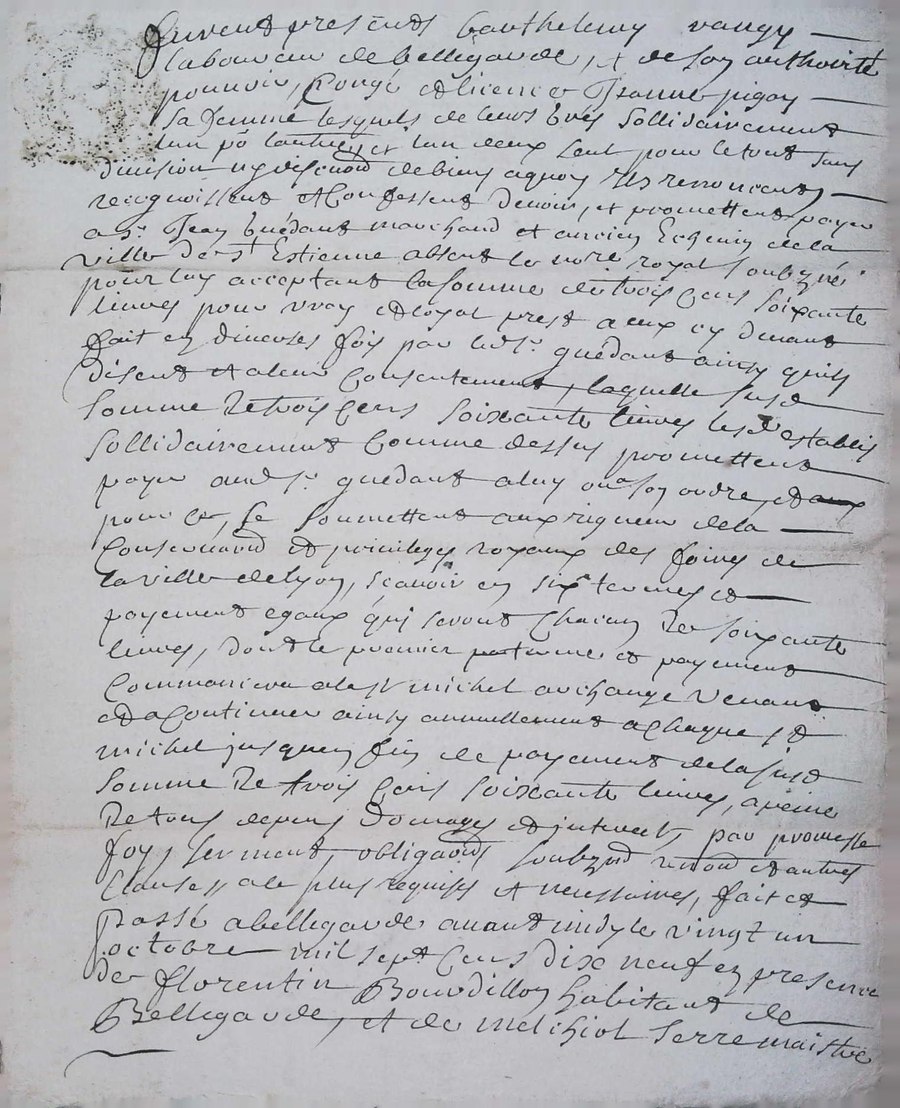 furent presents barthelemy vangy
laboureur de bellegarde, et de son authorité
pouvoir, Congé et licence Jeanne pigay
sa femme lesquels de leurs grés sollidairement
l'un po l'autre, et l'un deux seul pour le tout sans
division ny discution de biens a quoy ils renoncent,
recognoissent et Confessent devoir, et promettent payer
a sr Jean guédant marchand et ancien Echevin de la
ville de st Estienne absent le notre royal soubzné
pour luy acceptant la somme de trois Cens soixante
livres pour vray et loyal prest a eux cy devant
fait en diverses fois par led sr guédant ainsy quils
disent et a leur Consentement, laquelle susd
somme de trois Cens soixante livres lesd establis
sollidairement Comme dessus promettent
payer aud sr guedant a luy ou a son ordre, et
pour ce, se soumettent aux rigueurs de la
Conservaon et privileges royaux des foires de
la ville de lyon, sçavoir en six termes et
payement egaux qui seront Chacun de soixante
livres, dont le premier terme et payement
Commancera a la st michel archange venant
et a Continuer ainsy annuellement a chaque st
michel jusques en fin de payement de la susd
somme de trois Cens soixante livres, a peine
de tous depens domages et interests par promesse
foy, serment, obligaons soubzmd renond et autres
Clauses a ce plus requises et necessaires, fait et
passé a bellegarde avant midy le vingt un
octobre mil sept Cens dix neuf en presence
de florentin Bourdillon habitant de
Bellegarde, et de melchiol serre maistre